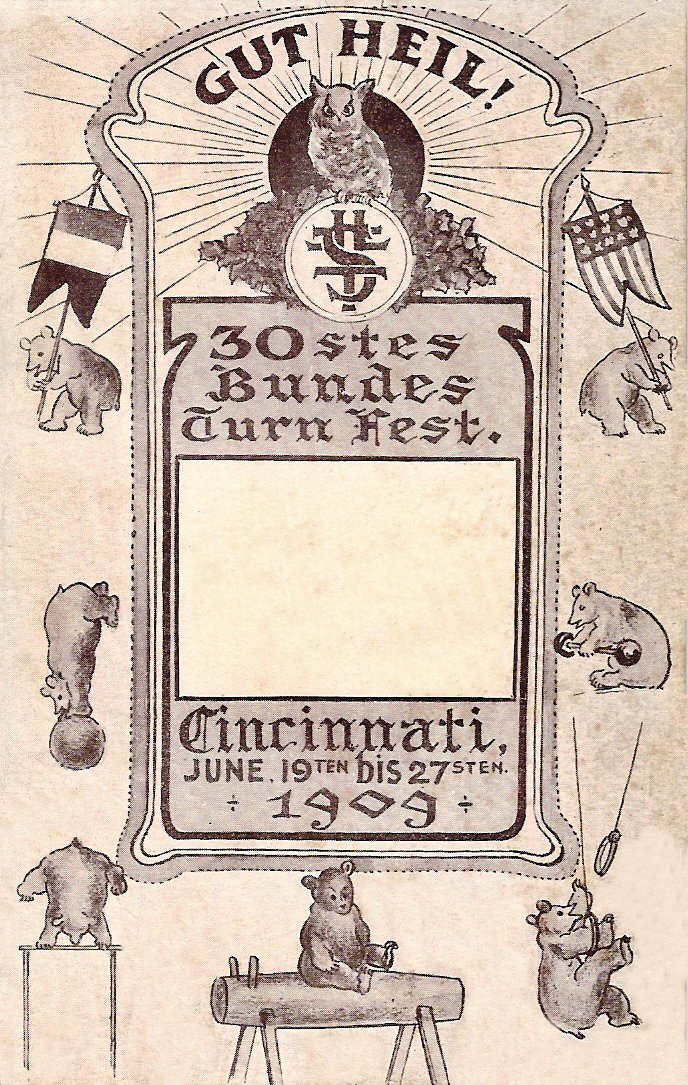 GUT HEIL!
30stes
Bundes
Turn Fest.
Cincinnati,
JUNE. 19TEN BIS 27STEN.
÷ 1909 ÷